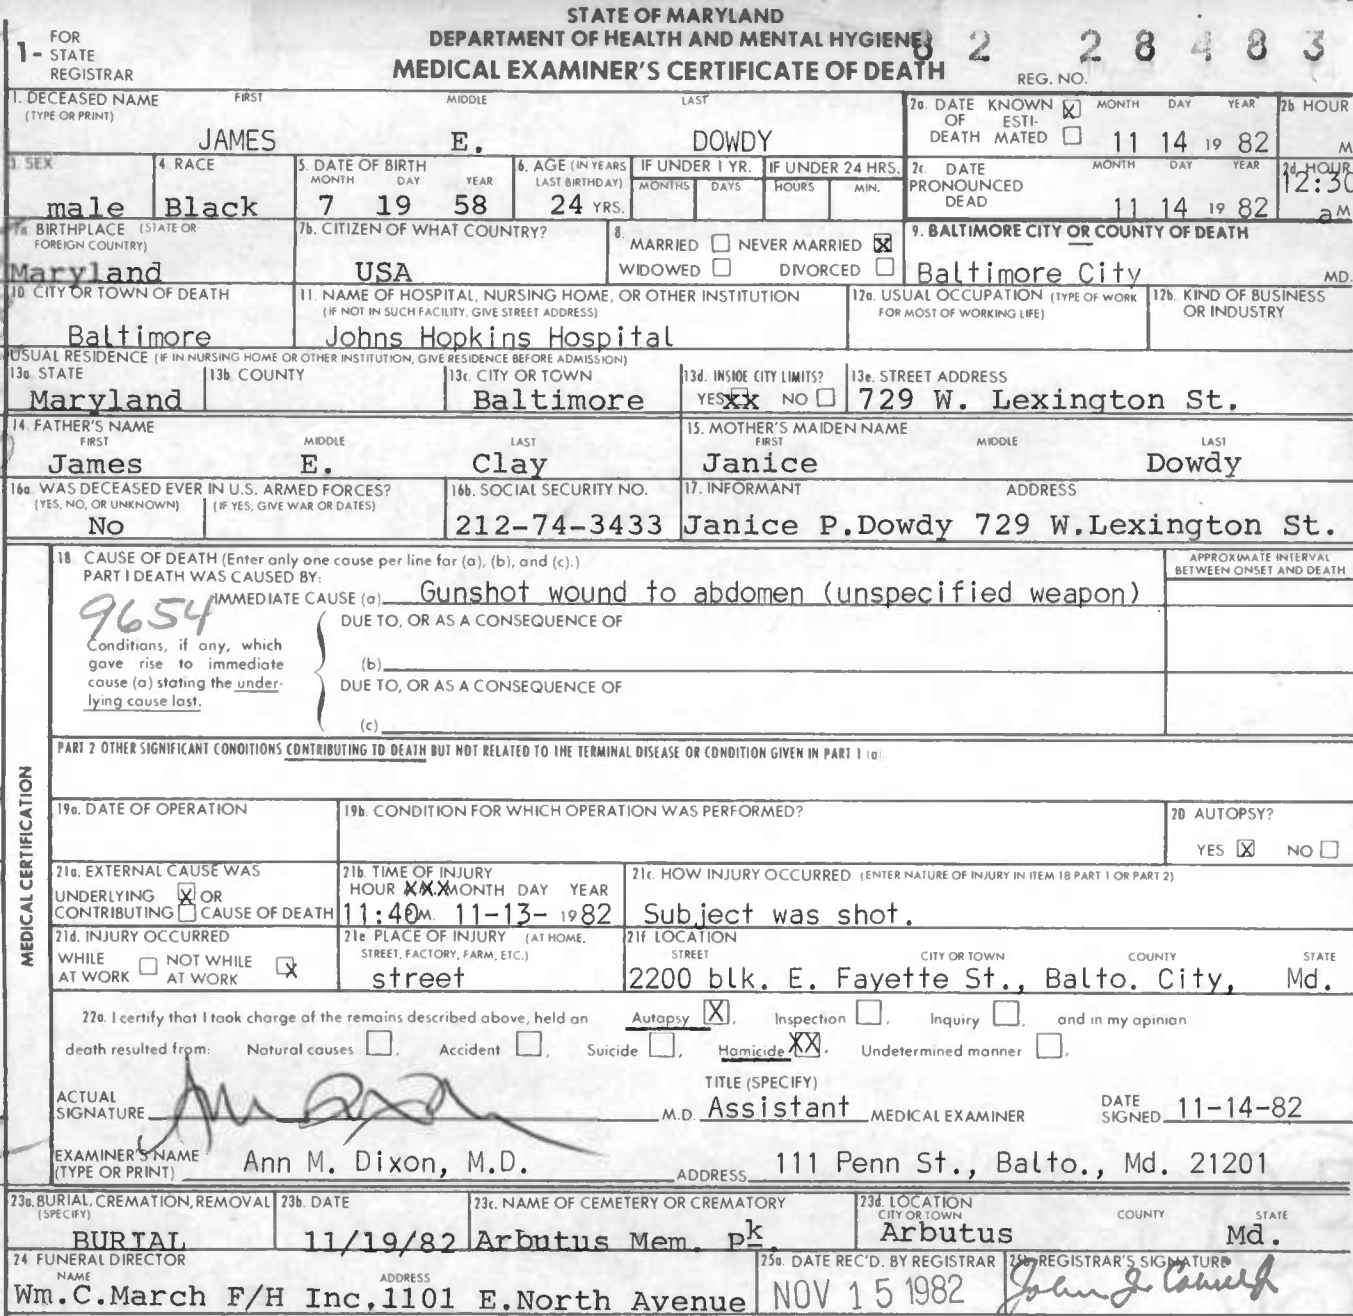 STATE OF MARYLAND
DEPARTMENT OF HEALTH AND MENTAL HYGIENE
MEDICAL EXAMINER'S CERTIFICATE OF DEATH
1- FOR STATE REGISTRAR
REG. NO. 82 28483
1. DECEASED NAME (TYPE OR PRINT) FIRST MIDDLE LAST
JAMES E. DOWDY
2a. DATE OF DEATH KNOWN X ESTIMATED MONTH DAY YEAR
11 14 19 82
2b. HOUR M
3. SEX
male
4. RACE
Black
5. DATE OF BIRTH MONTH DAY YEAR
7 19 58
6. AGE (IN YEARS LAST BIRTHDAY)
24 YRS.
IF UNDER 1 YR. MONTHS DAYS
IF UNDER 24 HRS. HOURS MIN.
2c. DATE PRONOUNCED DEAD MONTH DAY YEAR
11 14 19 82
2d. HOUR
12:30 aM
7a. BIRTHPLACE (STATE OR FOREIGN COUNTRY)
Maryland
7b. CITIZEN OF WHAT COUNTRY?
USA
8. MARRIED NEVER MARRIED X
WIDOWED DIVORCED
9. BALTIMORE CITY OR COUNTY OF DEATH
Baltimore City MD.
10. CITY OR TOWN OF DEATH
Baltimore
11. NAME OF HOSPITAL, NURSING HOME, OR OTHER INSTITUTION
(IF NOT IN SUCH FACILITY, GIVE STREET ADDRESS)
Johns Hopkins Hospital
12a. USUAL OCCUPATION (TYPE OF WORK FOR MOST OF WORKING LIFE)
12b. KIND OF BUSINESS OR INDUSTRY
USUAL RESIDENCE (IF IN NURSING HOME OR OTHER INSTITUTION, GIVE RESIDENCE BEFORE ADMISSION)
13a. STATE
Maryland
13b. COUNTY
13c. CITY OR TOWN
Baltimore
13d. INSIDE CITY LIMITS?
YES xx NO
13e. STREET ADDRESS
729 W. Lexington St.
14. FATHER'S NAME FIRST MIDDLE LAST
James E. Clay
15. MOTHER'S MAIDEN NAME FIRST MIDDLE LAST
Janice Dowdy
16a. WAS DECEASED EVER IN U.S. ARMED FORCES?
(YES, NO, OR UNKNOWN) (IF YES, GIVE WAR OR DATES)
No
16b. SOCIAL SECURITY NO.
212-74-3433
17. INFORMANT ADDRESS
Janice P.Dowdy 729 W.Lexington St.
MEDICAL CERTIFICATION
18. CAUSE OF DEATH (Enter only one cause per line for (a), (b), and (c).)
APPROXIMATE INTERVAL BETWEEN ONSET AND DEATH
PART I DEATH WAS CAUSED BY:
IMMEDIATE CAUSE (a) Gunshot wound to abdomen (unspecified weapon)
9654
Conditions, if any, which gave rise to immediate cause (a) stating the underlying cause last.
DUE TO, OR AS A CONSEQUENCE OF
(b)
DUE TO, OR AS A CONSEQUENCE OF
(c)
PART 2 OTHER SIGNIFICANT CONDITIONS CONTRIBUTING TO DEATH BUT NOT RELATED TO THE TERMINAL DISEASE OR CONDITION GIVEN IN PART 1 (a)
19a. DATE OF OPERATION
19b. CONDITION FOR WHICH OPERATION WAS PERFORMED?
20. AUTOPSY?
YES X NO
21a. EXTERNAL CAUSE WAS
UNDERLYING X OR
CONTRIBUTING CAUSE OF DEATH
21b. TIME OF INJURY
HOUR MONTH DAY YEAR
11:40M. 11-13- 1982
21c. HOW INJURY OCCURRED (ENTER NATURE OF INJURY IN ITEM 18 PART 1 OR PART 2)
Subject was shot.
21d. INJURY OCCURRED
WHILE AT WORK NOT WHILE AT WORK X
21e. PLACE OF INJURY (AT HOME, STREET, FACTORY, FARM, ETC.)
street
21f. LOCATION STREET CITY OR TOWN COUNTY STATE
2200 blk. E. Fayette St., Balto. City, Md.
22a. I certify that I took charge of the remains described above, held an Autopsy X, Inspection , Inquiry , and in my opinion
death resulted from: Natural causes , Accident , Suicide , Homicide XX, Undetermined manner ,
ACTUAL SIGNATURE M.D.
TITLE (SPECIFY)
Assistant MEDICAL EXAMINER
DATE SIGNED 11-14-82
EXAMINER'S NAME (TYPE OR PRINT) Ann M. Dixon, M.D.
ADDRESS 111 Penn St., Balto., Md. 21201
23a. BURIAL, CREMATION, REMOVAL (SPECIFY)
BURIAL
23b. DATE
11/19/82
23c. NAME OF CEMETERY OR CREMATORY
Arbutus Mem. Pk.
23d. LOCATION CITY OR TOWN COUNTY STATE
Arbutus Md.
24. FUNERAL DIRECTOR NAME ADDRESS
Wm.C.March F/H Inc,1101 E.North Avenue
25a. DATE REC'D. BY REGISTRAR
NOV 15 1982
25b. REGISTRAR'S SIGNATURE